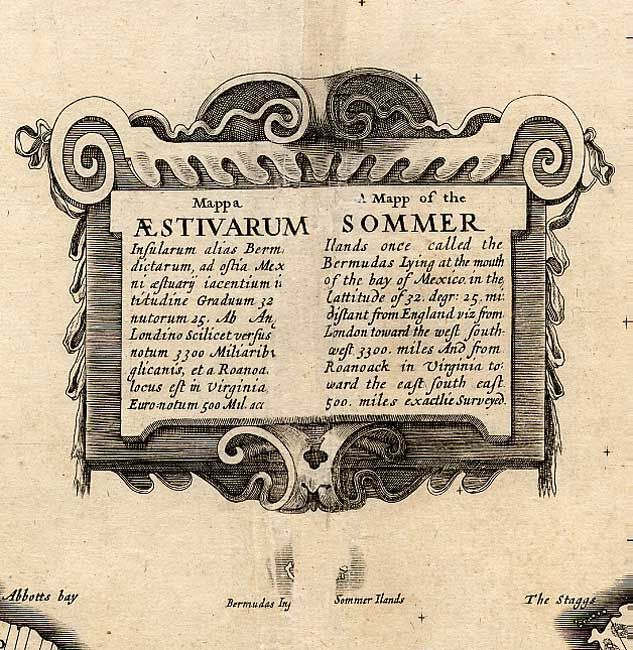 Mappa
ÆSTIVARUM
Insularum alias Berm
dictarum, ad ostia Mex
ni æstuarÿ iacentium
titudine Graduum 32
nutorum 25. Ab An
Londino Scilicet versus
notum 3300 Miliarib
glicanis, et a Roanoa
locus est in Virginia
Euro:notum 500 Mil. acc
A Mapp of the
SOMMER
Ilands once called the
Bermudas Lying at the mouth
of the bay of Mexico in the
Lattitude of 32. degr: 25. mi:
distant from England viz from
London toward the west south-
west 3300. miles And from
Roanoack in Virginia to:
ward the east south east
500. miles exactlie Surveyed.
Abbotts bay
Bermudas In
Sommer Ilands
The Staggs